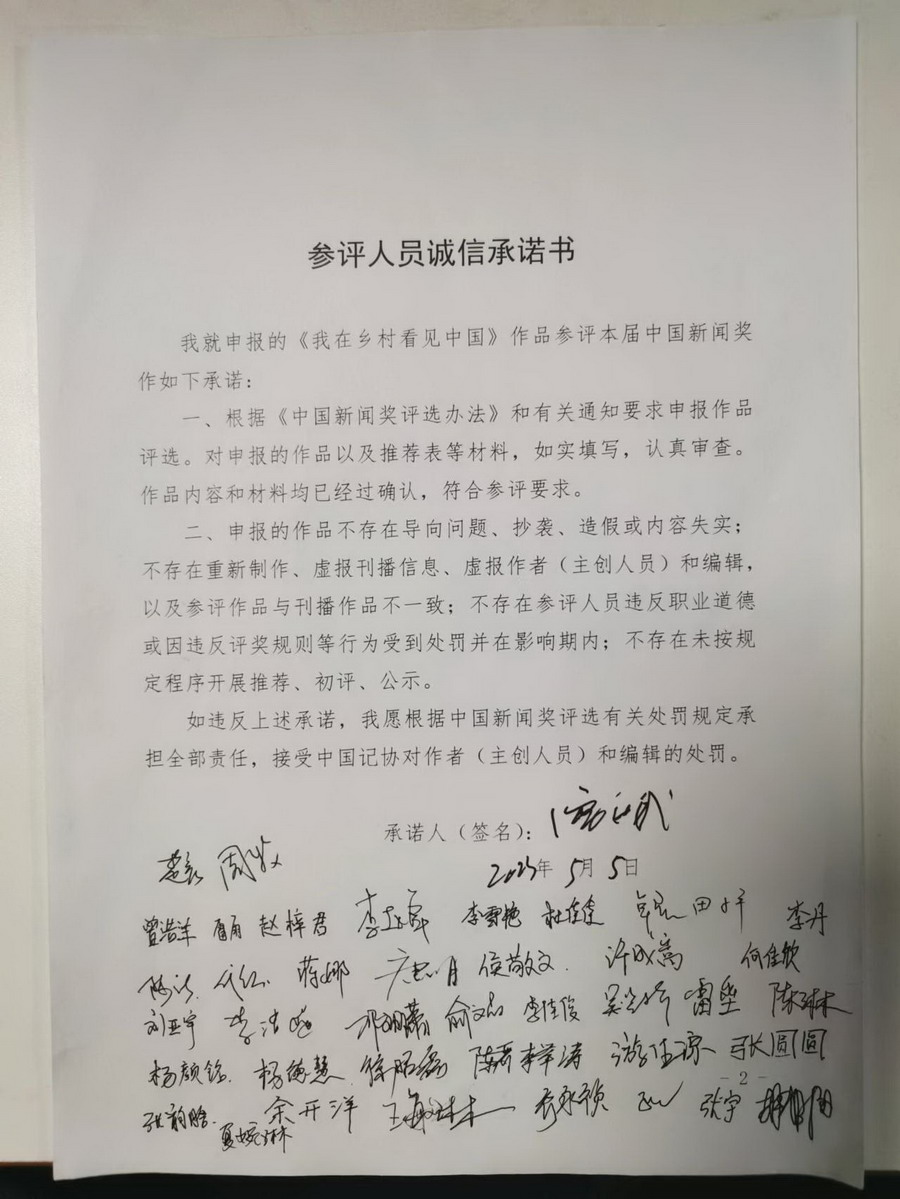 参评人员诚信承诺书
我就申报的《我在乡村看见中国》作品参评本届中国新闻奖
作如下承诺：
一、根据《中国新闻奖评选办法》和有关通知要求申报作品
评选。对申报的作品以及推荐表等材料，如实填写，认真审查。
作品内容和材料均已经过确认，符合参评要求。
二、申报的作品不存在导向问题、抄袭、造假或内容失实；
不存在重新制作、虚报刊播信息、虚报作者（主创人员）和编辑，
以及参评作品与刊播作品不一致；不存在参评人员违反职业道德
或因违反评奖规则等行为受到处罚并在影响期内；不存在未按规
定程序开展推荐、初评、公示。
如违反上述承诺，我愿根据中国新闻奖评选有关处罚规定承
担全部责任，接受中国记协对作者（主创人员）和编辑的处罚。
承诺人（签名）：
周
2023年 5月 5日
曾浩洋 赵梓君 李雪艳 杜佳佳 田 李丹
蒋娜 侯敬文 许成嵩 何佳欣
刘亚宇 李佳俊 雷堃 陈琳
杨颜铭 杨德慧 张圆圆
- 2 -
张韵晗 余开洋 张宇
夏婉琳